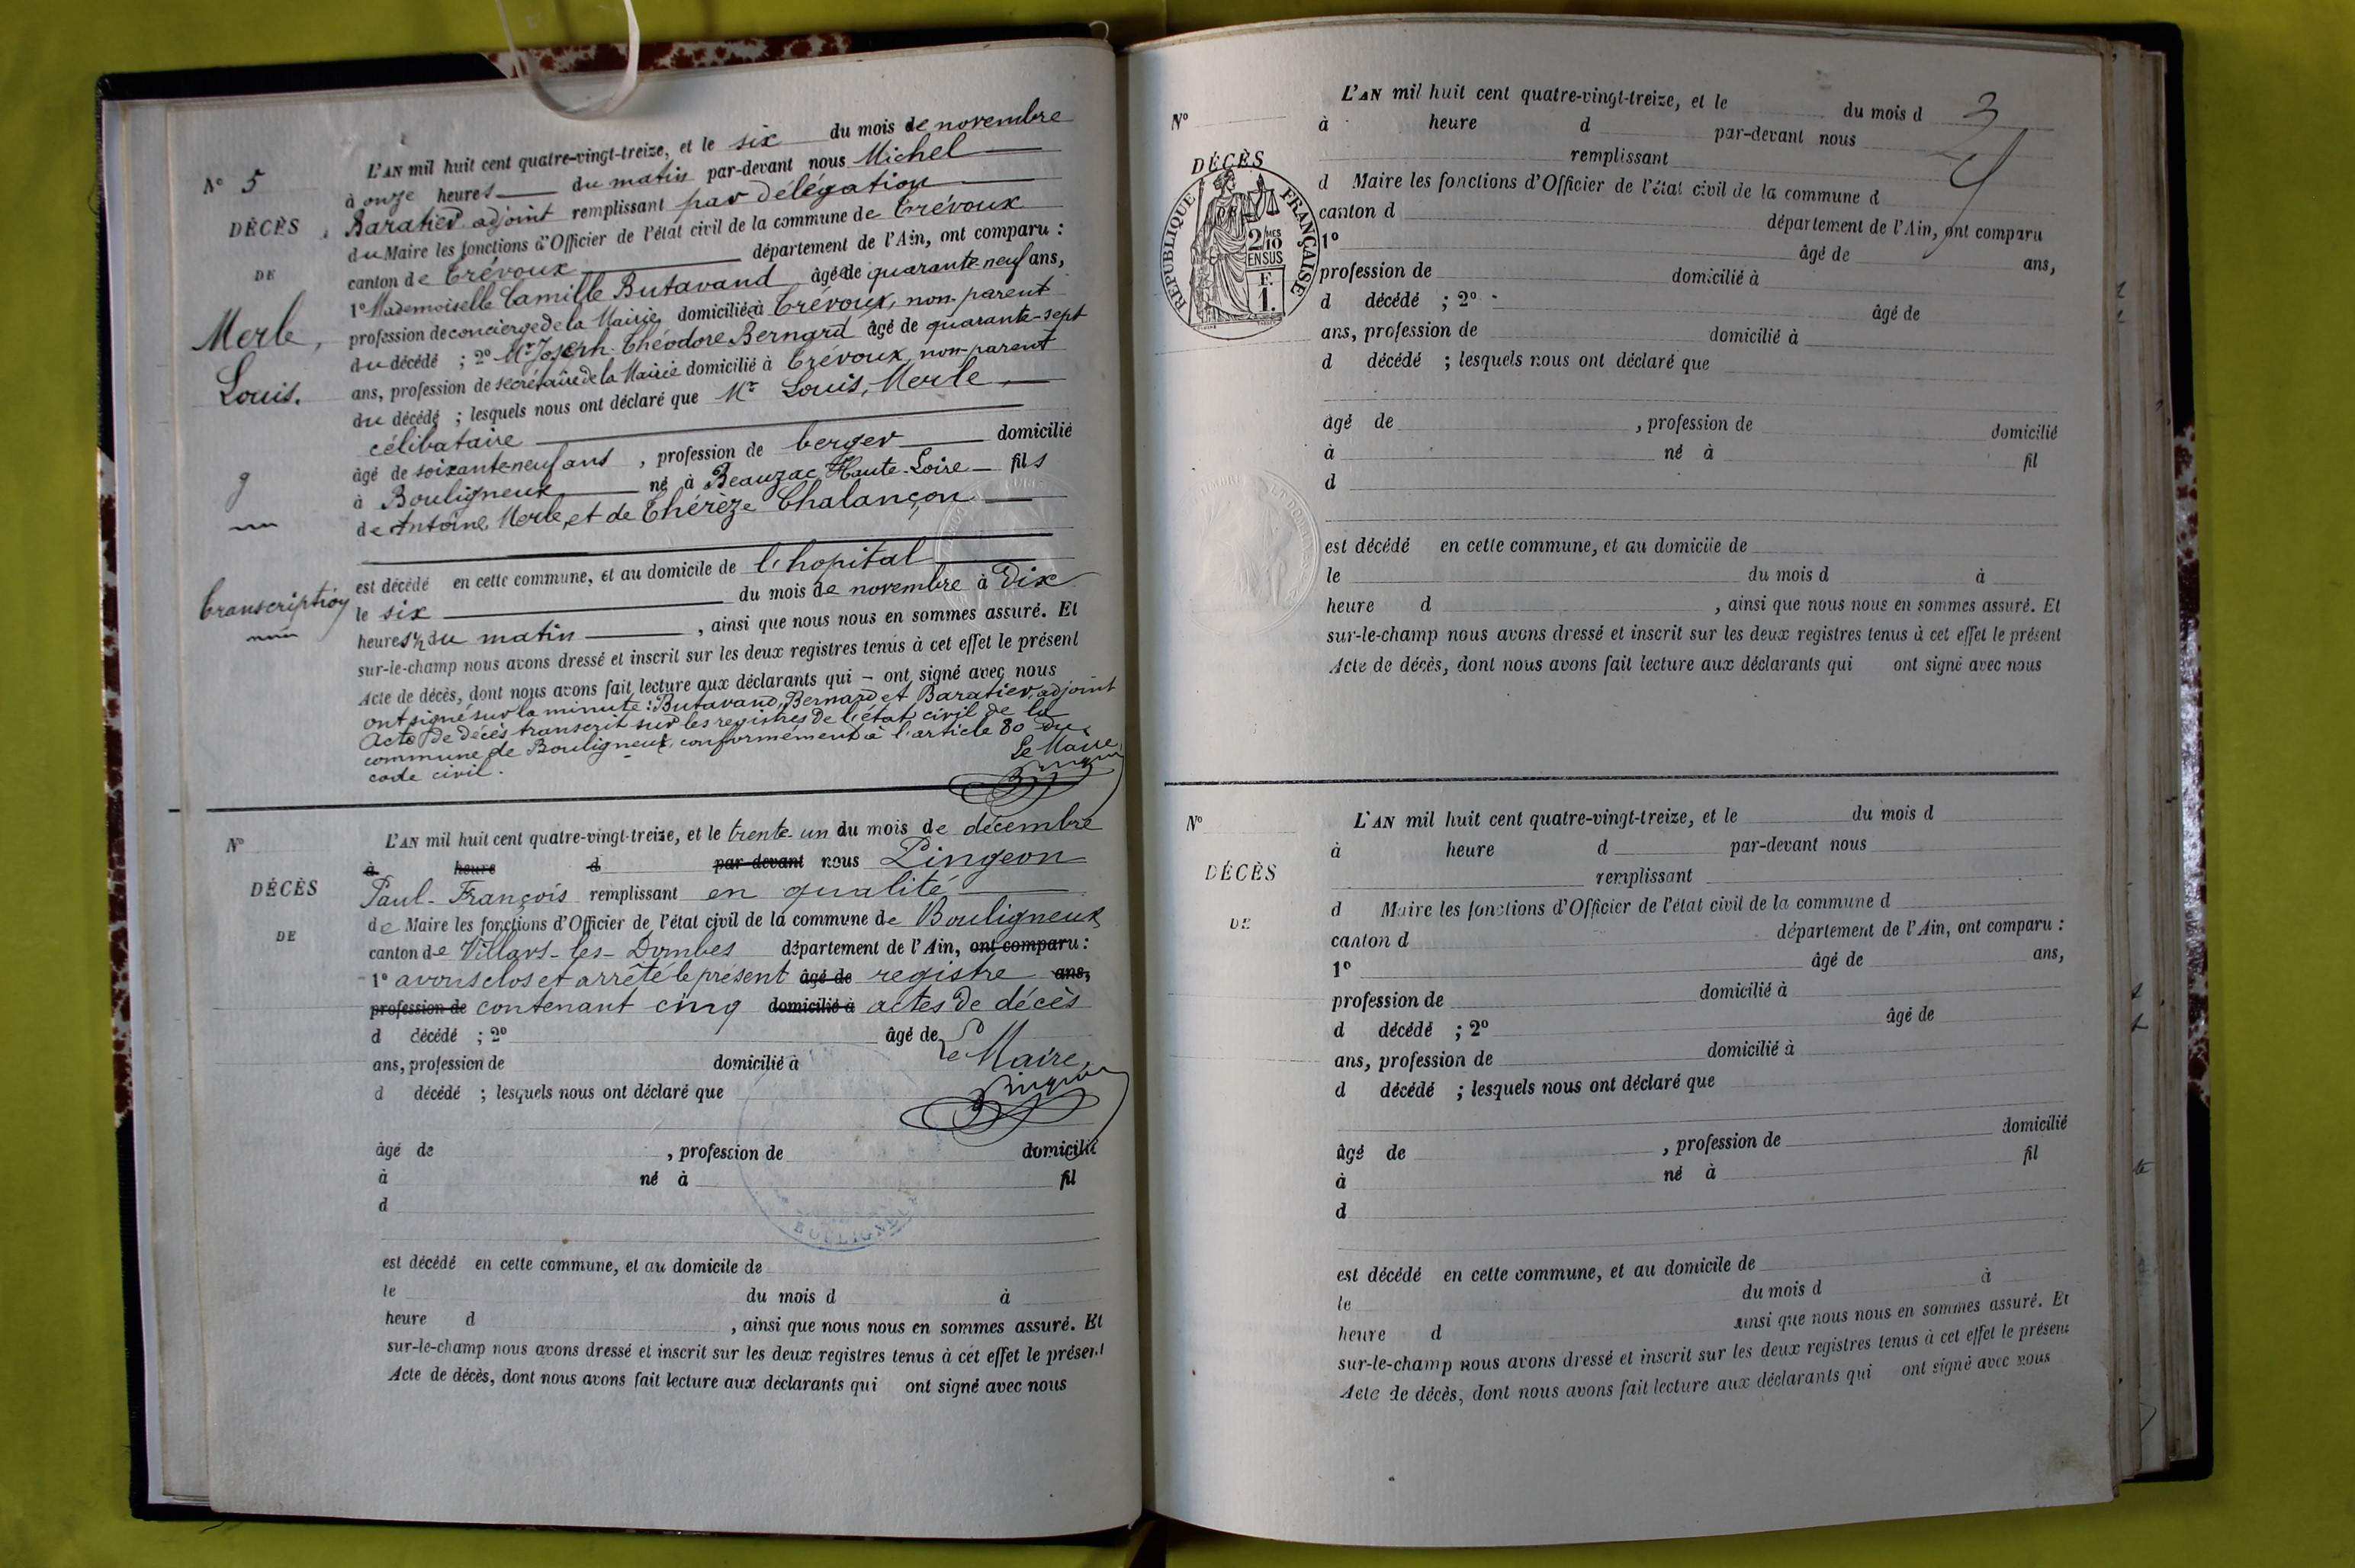 N° 5
DÉCÈS
DE
Merle,
Louis.
g
Transcription
L'AN mil huit cent quatre-vingt-treize, et le six du mois de novembre
à onze heures du matin par-devant nous Michel
Baratier adjoint remplissant par délégation
du Maire les fonctions d'Officier de l'état civil de la commune de Trévoux
canton de Trévoux département de l'Ain, ont comparu :
1° Mademoiselle Camille Butavand âgée de quarante neuf ans,
profession de concierge de la Mairie domiciliée à Trévoux, non-parent
du décédé ; 2° Mr Joseph Théodore Bernard âgé de quarante-sept
ans, profession de secrétaire de la Mairie domicilié à Trévoux non-parent
du décédé ; lesquels nous ont déclaré que Mr Louis, Merle,
célibataire
âgé de soixante-neuf ans , profession de berger domicilié
à Bouligneux né à Beauzac Haute-Loire fils
de Antoine Merle, et de Thérèze Chalançon
est décédé en cette commune, et au domicile de l'hopital
le six du mois de novembre à Dix
heures ½ du matin , ainsi que nous nous en sommes assuré. Et
sur-le-champ nous avons dressé et inscrit sur les deux registres tenus à cet effet le présent
Acte de décès, dont nous avons fait lecture aux déclarants qui – ont signé avec nous
ont signé sur la minute : Butavand, Bernard et Baratier, adjoint
Acte de décès transcrit sur les registres de l'état civil de la
commune de Bouligneux, conformément à l'article 80 du
code civil.
Le Maire,
Pingeon
N°
DÉCÈS
DE
L'AN mil huit cent quatre-vingt-treize, et le trente-un du mois de décembre
à heure d par-devant nous Pingeon
Paul-François remplissant en qualité
de Maire les fonctions d'Officier de l'état civil de la commune de Bouligneux
canton de Villars-les-Dombes département de l'Ain, ont comparu :
1° avons clos et arrêté le présent âgé de registre ans,
profession de contenant cinq domicilié à actes de décès
d décédé ; 2° âgé de
Le Maire,
ans, profession de domicilié à
Pingeon
d décédé ; lesquels nous ont déclaré que
âgé de , profession de domicilié
à né à fil
d
BOULIGNEUX
est décédé en cette commune, et au domicile de
le du mois d à
heure d , ainsi que nous nous en sommes assuré. Et
sur-le-champ nous avons dressé et inscrit sur les deux registres tenus à cet effet le présent
Acte de décès, dont nous avons fait lecture aux déclarants qui ont signé avec nous
N°
DÉCÈS
RÉPUBLIQUE FRANÇAISE
2/10MES
EN SUS
F.
1.
L'AN mil huit cent quatre-vingt-treize, et le du mois d
3
4
à heure d par-devant nous
remplissant
d Maire les fonctions d'Officier de l'état civil de la commune d
canton d département de l'Ain, ont comparu
1° âgé de ans,
profession de domicilié à
d décédé ; 2° âgé de
ans, profession de domicilié à
d décédé ; lesquels nous ont déclaré que
âgé de , profession de domicilié
à né à fil
d
est décédé en cette commune, et au domicile de
le du mois d à
heure d , ainsi que nous nous en sommes assuré. Et
sur-le-champ nous avons dressé et inscrit sur les deux registres tenus à cet effet le présent
Acte de décès, dont nous avons fait lecture aux déclarants qui ont signé avec nous
N°
DÉCÈS
DE
L'AN mil huit cent quatre-vingt-treize, et le du mois d
à heure d par-devant nous
remplissant
d Maire les fonctions d'Officier de l'état civil de la commune d
canton d département de l'Ain, ont comparu :
1° âgé de ans,
profession de domicilié à
d décédé ; 2° âgé de
ans, profession de domicilié à
d décédé ; lesquels nous ont déclaré que
âgé de , profession de domicilié
à né à fil
d
est décédé en cette commune, et au domicile de
le du mois d à
heure d ainsi que nous nous en sommes assuré. Et
sur-le-champ nous avons dressé et inscrit sur les deux registres tenus à cet effet le présent
Acte de décès, dont nous avons fait lecture aux déclarants qui ont signé avec nous